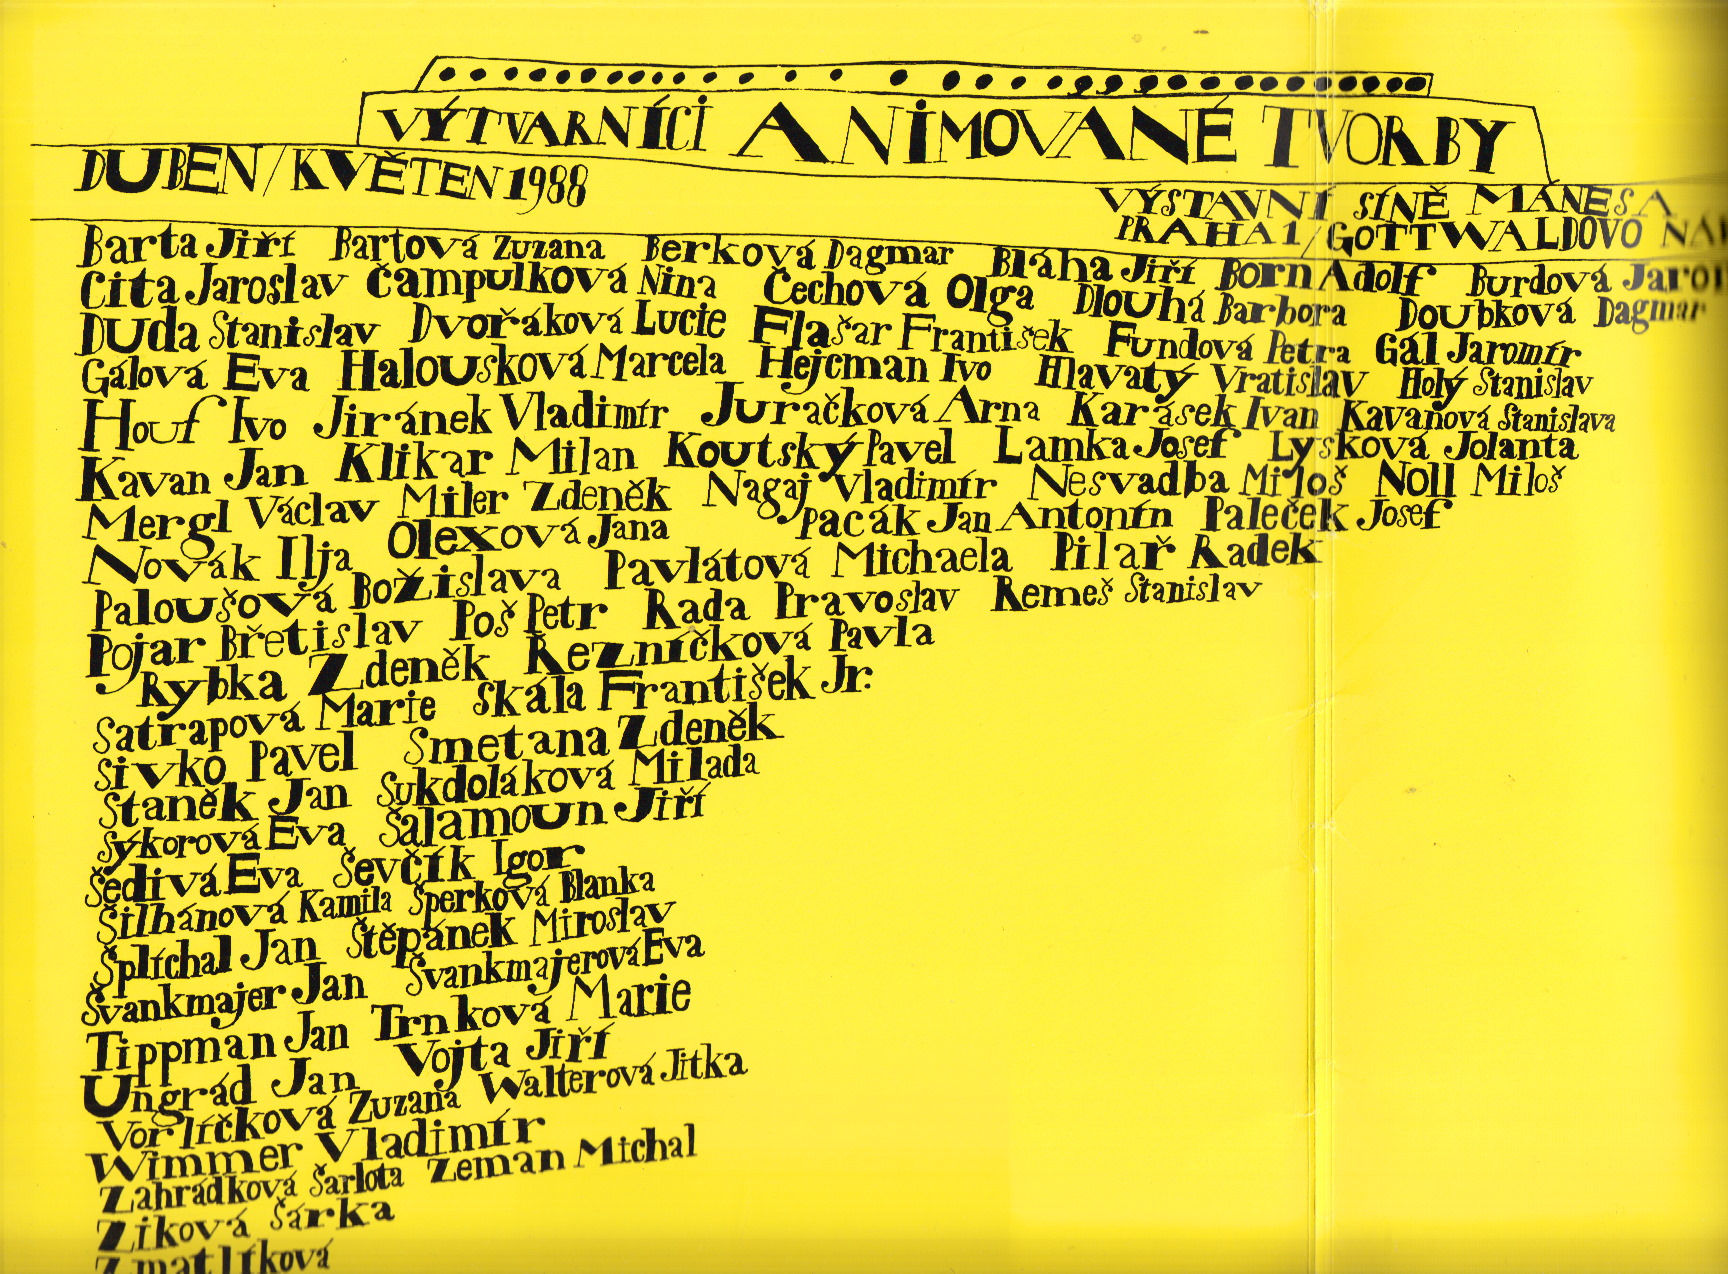 VÝTVARNÍCI ANIMOVANÉ TVORBY
DUBEN/KVĚTEN 1988
VÝSTAVNÍ SÍNĚ MÁNESA
PRAHA 1/GOTTWALDOVO
Barta Jiří Bartová Zuzana Berková Dagmar Bláha Jiří Born Adolf Burdová
Cita Jaroslav Čampulková Nina Čechová Olga Dlouhá Barbora Doubková Dagmar
Duda Stanislav Dvořáková Lucie Flašar František Fundová Petra Gál Jaromír
Gálová Eva Halousková Marcela Hejcman Ivo Hlavatý Vratislav Holý Stanislav
Houf Ivo Jiránek Vladimír Juračková Arna Karásek Ivan Kavanová Stanislava
Kavan Jan Klikar Milan Koutský Pavel Lamka Josef Lysková Jolanta
Mergl Václav Miler Zdeněk Nagaj Vladimír Nesvadba Miloš Noll Miloš
Novák Ilja Olexová Jana Pacák Jan Antonín Paleček Josef
Paloušová Božislava Pavlátová Michaela Pilař Radek
Pojar Břetislav Poš Petr Rada Pravoslav Remeš Stanislav
Rybka Zdeněk Řezníčková Pavla
Satrapová Marie Skála František Jr.
Sivko Pavel Smetana Zdeněk
Staněk Jan Sukdoláková Milada
Sýkorová Eva Šalamoun Jiří
Šedivá Eva Ševčík Igor
Šilhánová Kamila Šperková Blanka
Šplíchal Jan Štěpánek Miroslav
Švankmajer Jan Švankmajerová Eva
Tippman Jan Trnková Marie
Ungrád Jan Vojta Jiří
Vorlíčková Zuzana Walterová Jitka
Wimmer Vladimír
Zahrádková Šarlota Zeman Michal
Ziková Šárka
Zmatlíková